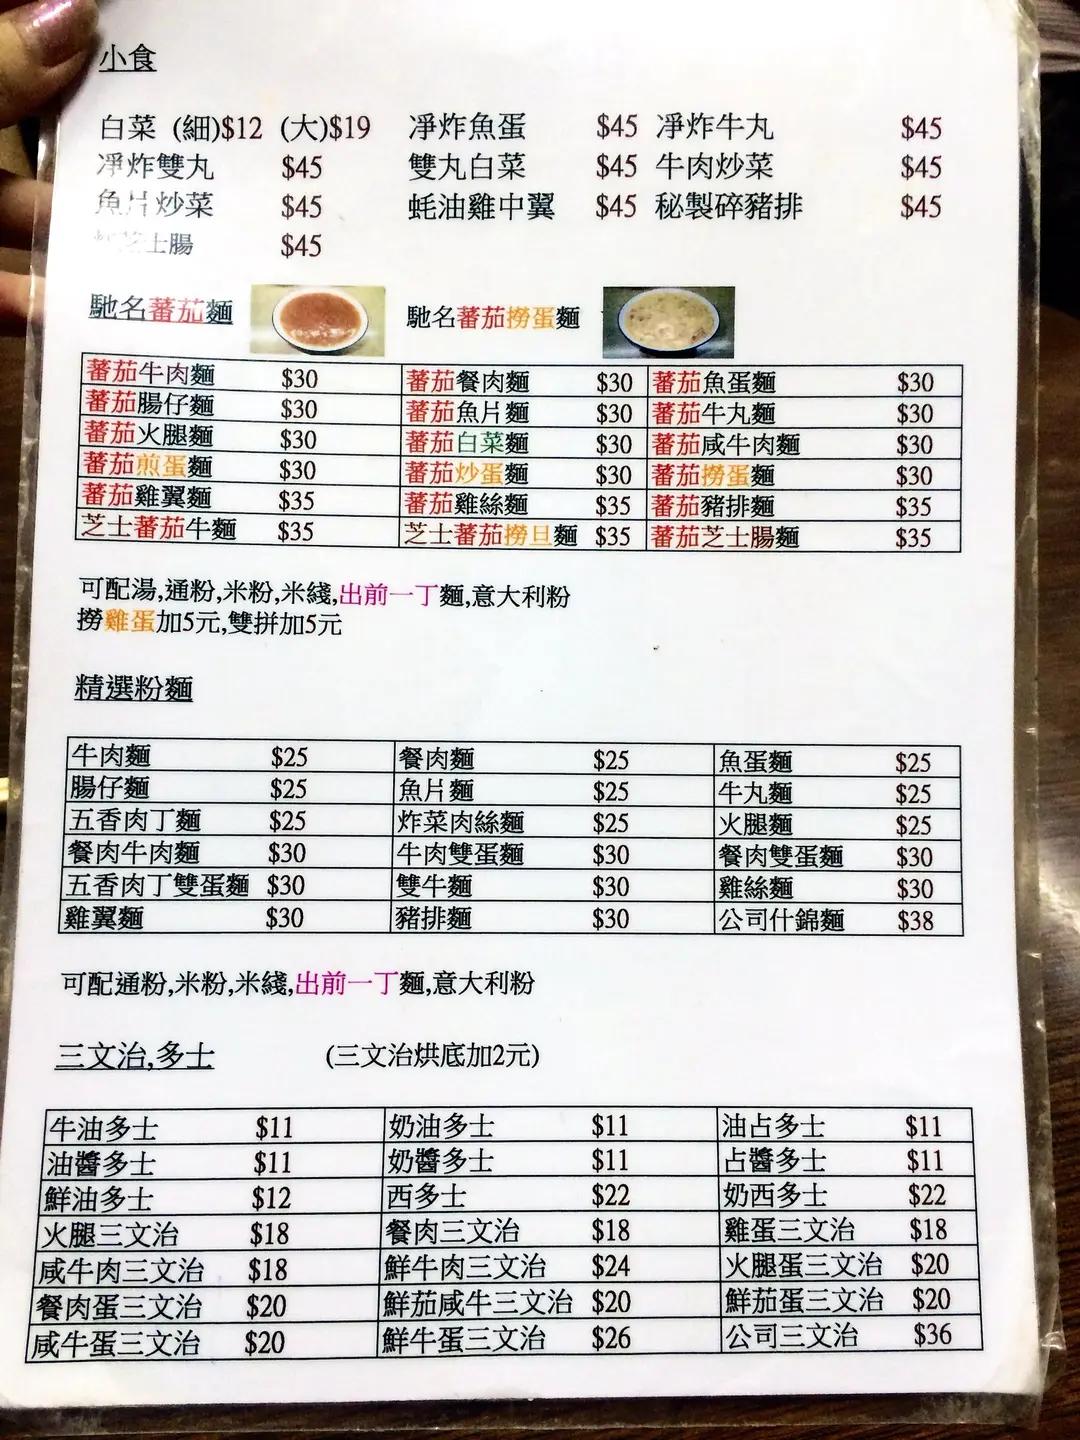 小食
白菜 (細)$12 (大)$19 淨炸魚蛋 $45 淨炸牛丸 $45
淨炸雙丸 $45 雙丸白菜 $45 牛肉炒菜 $45
魚片炒菜 $45 蚝油雞中翼 $45 秘製碎豬排 $45
芝士腸 $45
馳名蕃茄麵 馳名蕃茄撈蛋麵
蕃茄牛肉麵 $30 蕃茄餐肉麵 $30 蕃茄魚蛋麵 $30
蕃茄腸仔麵 $30 蕃茄魚片麵 $30 蕃茄牛丸麵 $30
蕃茄火腿麵 $30 蕃茄白菜麵 $30 蕃茄咸牛肉麵 $30
蕃茄煎蛋麵 $30 蕃茄炒蛋麵 $30 蕃茄撈蛋麵 $30
蕃茄雞翼麵 $35 蕃茄雞絲麵 $35 蕃茄豬排麵 $35
芝士蕃茄牛麵 $35 芝士蕃茄撈旦麵 $35 蕃茄芝士腸麵 $35
可配湯,通粉,米粉,米綫,出前一丁麵,意大利粉
撈雞蛋加5元,雙拼加5元
精選粉麵
牛肉麵 $25 餐肉麵 $25 魚蛋麵 $25
腸仔麵 $25 魚片麵 $25 牛丸麵 $25
五香肉丁麵 $25 炸菜肉絲麵 $25 火腿麵 $25
餐肉牛肉麵 $30 牛肉雙蛋麵 $30 餐肉雙蛋麵 $30
五香肉丁雙蛋麵 $30 雙牛麵 $30 雞絲麵 $30
雞翼麵 $30 豬排麵 $30 公司什錦麵 $38
可配通粉,米粉,米綫,出前一丁麵,意大利粉
三文治,多士 (三文治烘底加2元)
牛油多士 $11 奶油多士 $11 油占多士 $11
油醬多士 $11 奶醬多士 $11 占醬多士 $11
鮮油多士 $12 西多士 $22 奶西多士 $22
火腿三文治 $18 餐肉三文治 $18 雞蛋三文治 $18
咸牛肉三文治 $18 鮮牛肉三文治 $24 火腿蛋三文治 $20
餐肉蛋三文治 $20 鮮茄咸牛三文治 $20 鮮茄蛋三文治 $20
咸牛蛋三文治 $20 鮮牛蛋三文治 $26 公司三文治 $36